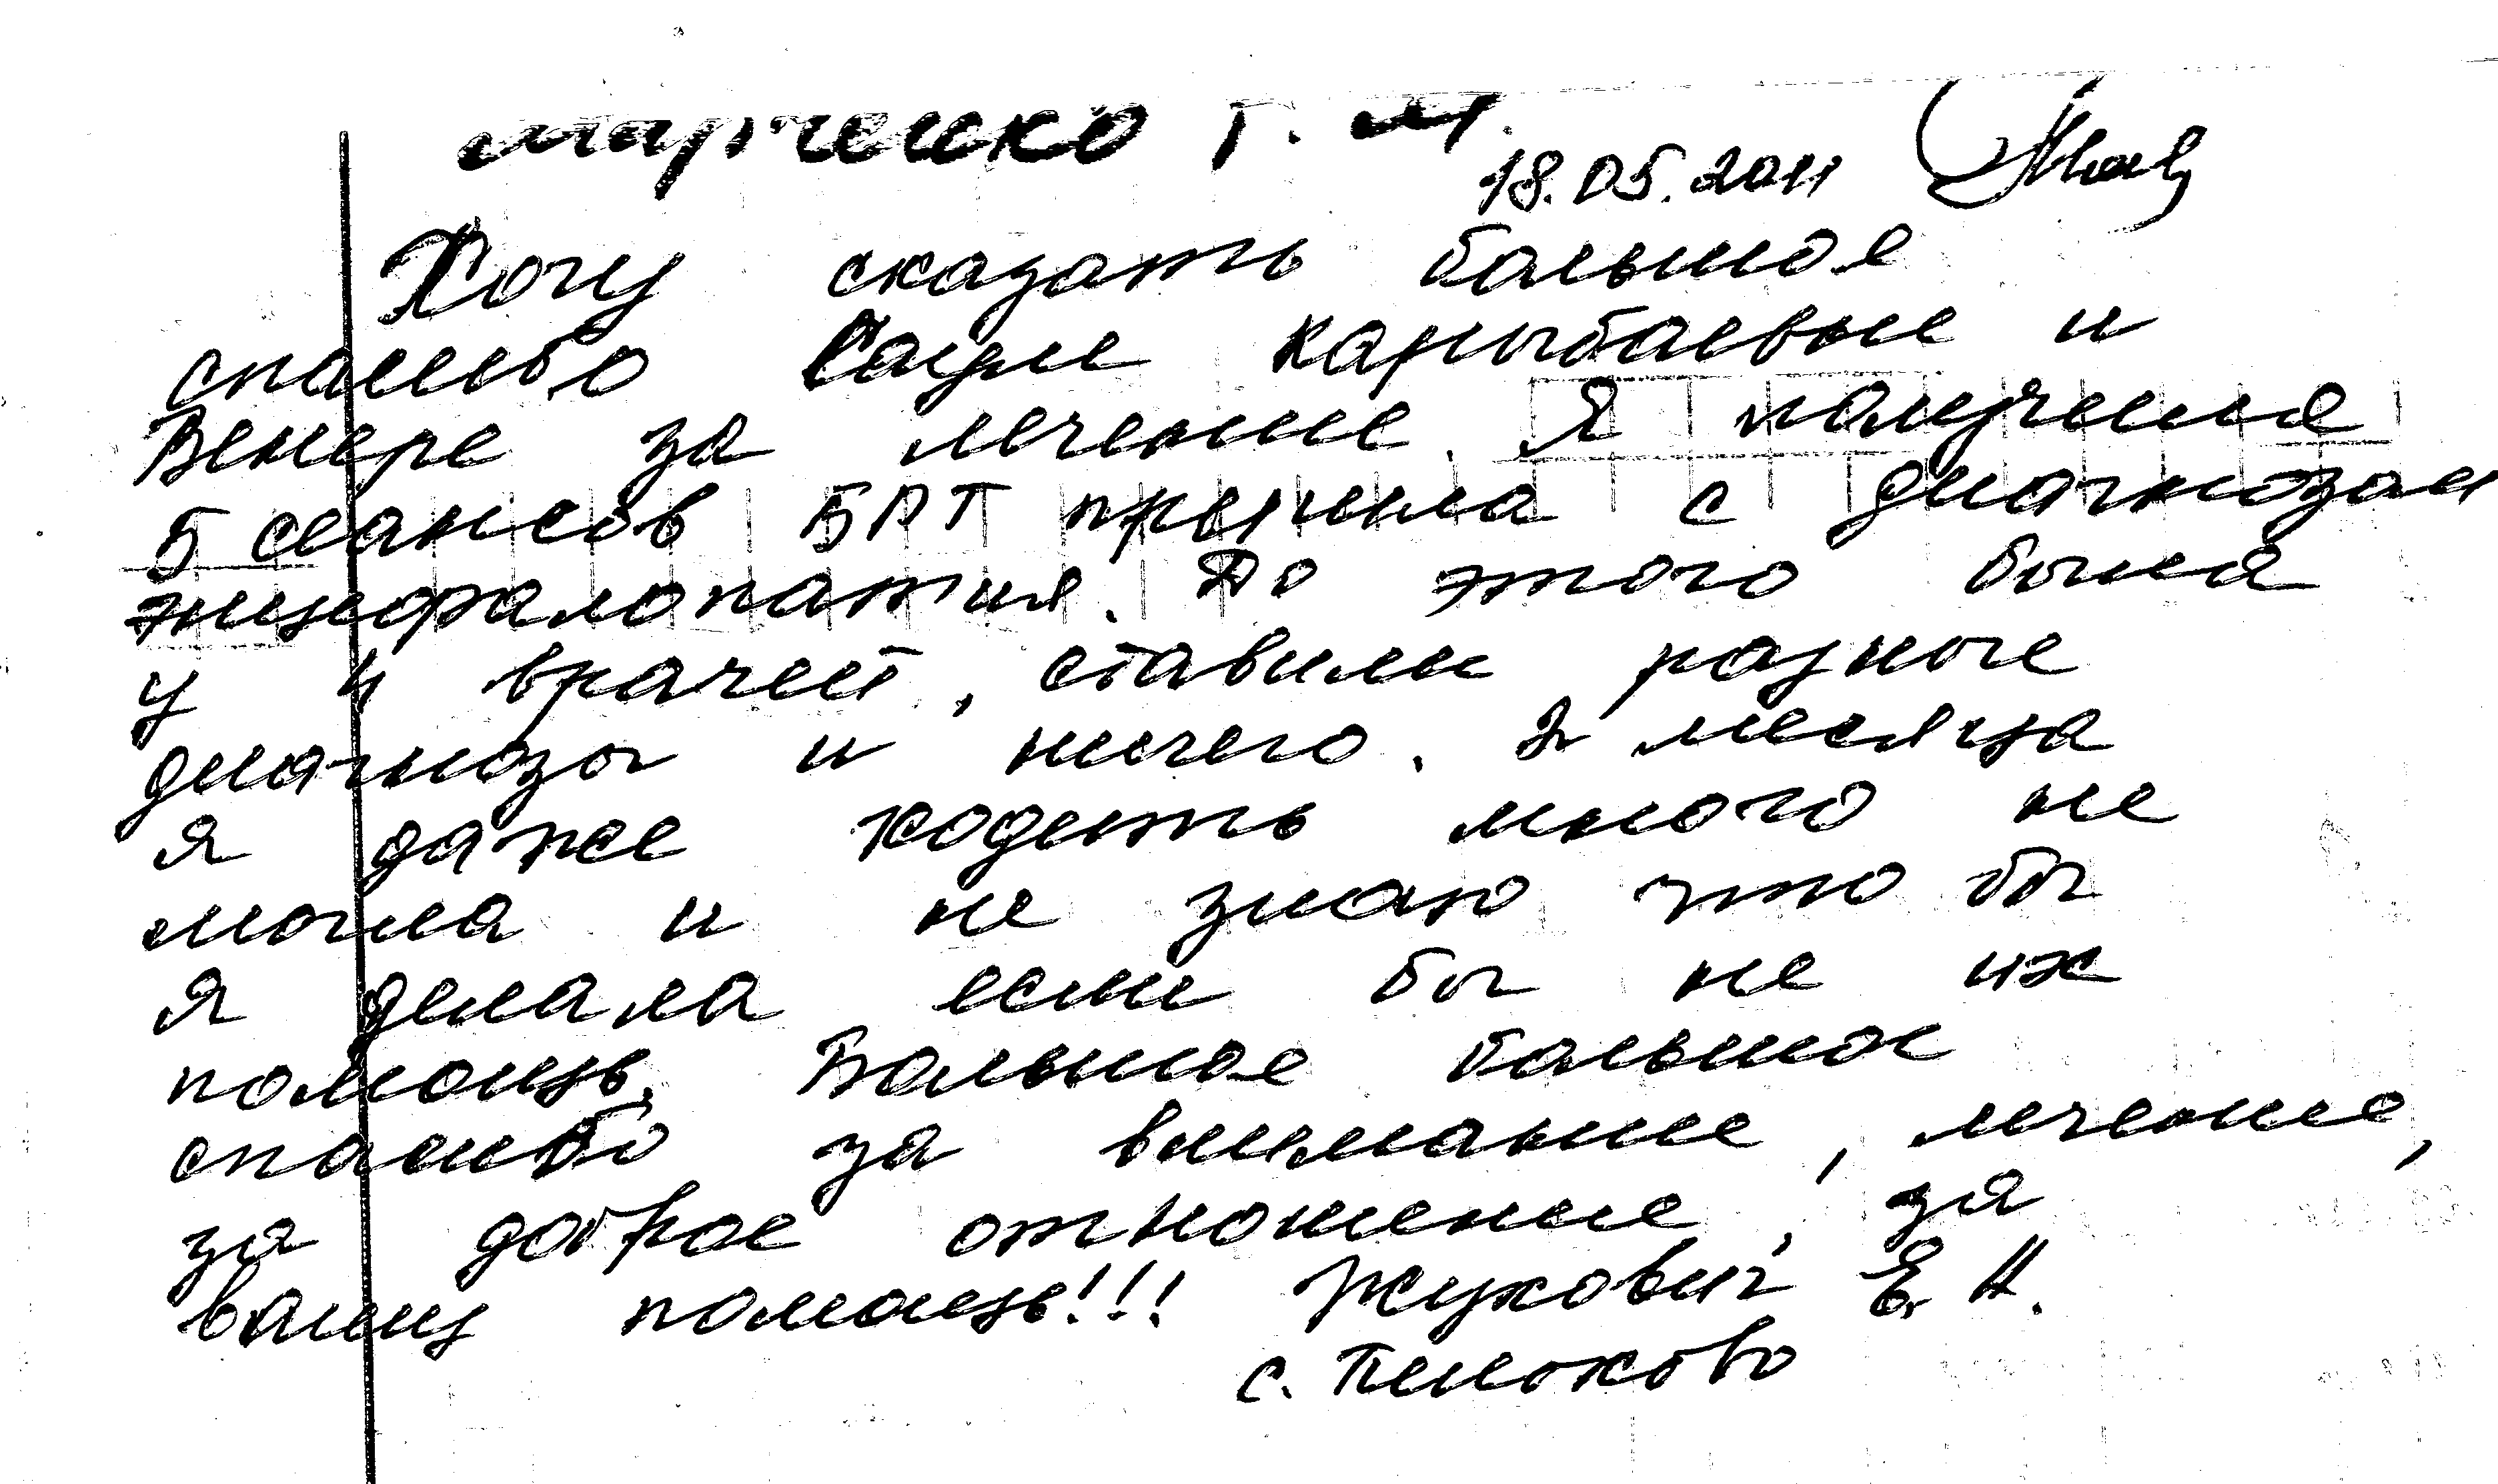 Марченко Г. М.
18.05.2011
Хочу сказать большое
спасибо Сауле Карлыбаевне и
Венере за лечение. Я получила
5 сеансов БРТ пришла с диагнозом
энцефалопатия. До этого была
у 4 врачей, ставили разные
диагнозы и ничего. 2 месяца
я даже ходить много не
могла и не знаю что бы
я делала если бы не их
помощь. Большое большое
спасибо за внимание, лечение,
за доброе отношение, за
вашу помощь!!! Жукович Е. Н.
с.